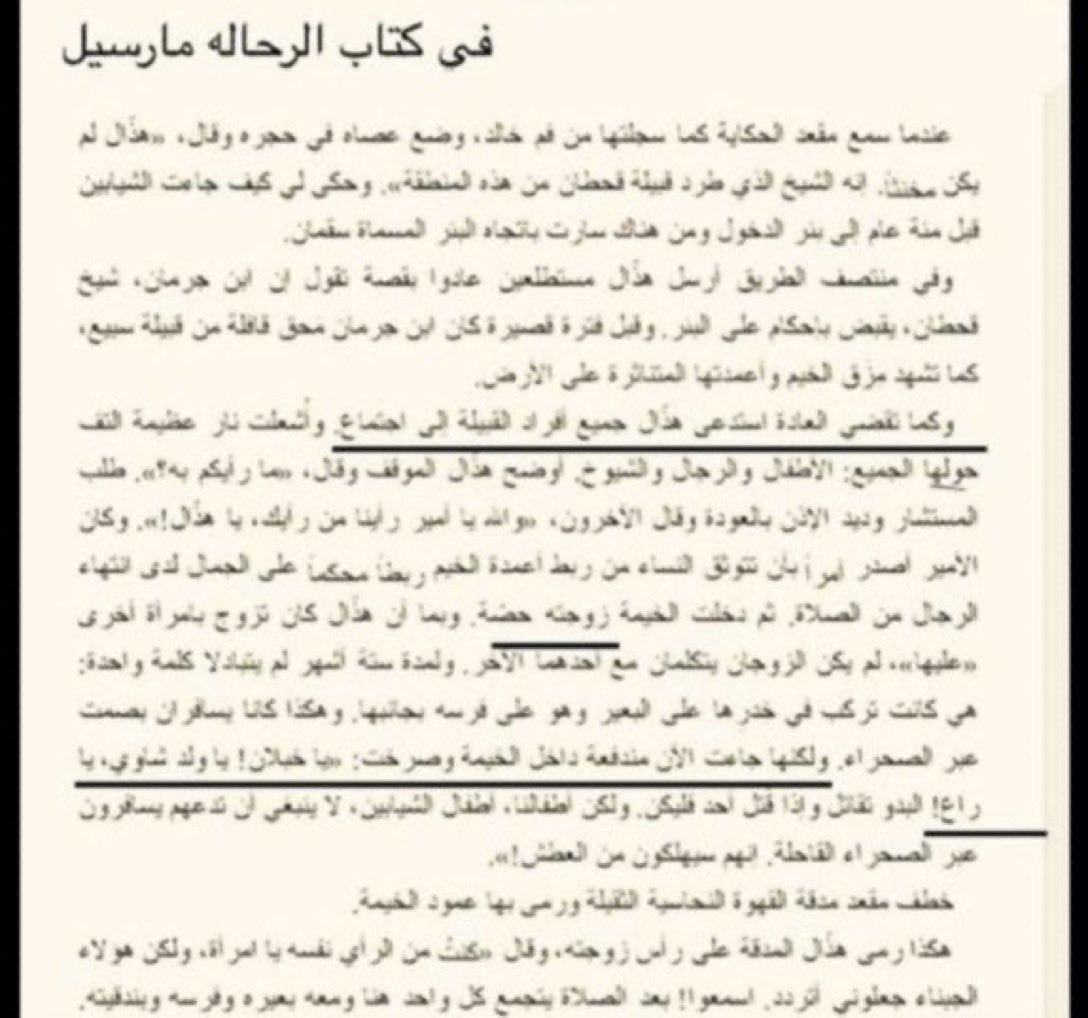 في كتاب الرحاله مارسيل
عندما سمع مقعد الحكاية كما سجلتها من فم خالد، وضع عصاه في حجره وقال، «هذّال لم
يكن مخنثاً. انه الشيخ الذي طرد قبيلة قحطان من هذه المنطقة». وحكى لي كيف جاءت الشيابين
قبل مئة عام إلى بئر الدخول ومن هناك سارت باتجاه البئر المسماة سقمان.
وفي منتصف الطريق أرسل هذّال مستطلعين عادوا بقصة تقول إن ابن جرمان، شيخ
قحطان، يقبض بإحكام على البئر. وقبل فترة قصيرة كان ابن جرمان محق قافلة من قبيلة سبيع،
كما تشهد مزق الخيم وأعمدتها المتناثرة على الأرض.
وكما تقضي العادة استدعى هذّال جميع أفراد القبيلة إلى اجتماع. وأُشعلت نار عظيمة التف
حولها الجميع: الأطفال والرجال والشيوخ. أوضح هذّال الموقف وقال، «ما رأيكم به؟». طلب
المستشار وديد الإذن بالعودة وقال الآخرون، «والله يا أمير رأينا من رأيك، يا هذّال!». وكان
الأمير أصدر أمراً بأن تتوثق النساء من ربط أعمدة الخيم ربطاً محكماً على الجمال لدى انتهاء
الرجال من الصلاة. ثم دخلت الخيمة زوجته حصّة. وبما أن هذّال كان تزوج بامرأة أخرى
«عليها»، لم يكن الزوجان يتكلمان مع أحدهما الآخر. ولمدة ستة أشهر لم يتبادلا كلمة واحدة:
هي كانت تركب في خدرها على البعير وهو على فرسه بجانبها. وهكذا كانا يسافران بصمت
عبر الصحراء. ولكنها جاءت الآن مندفعة داخل الخيمة وصرخت: «يا خبلان! يا ولد شاوي، يا
راعٍ! البدو تقاتل وإذا قُتل أحد فليكن. ولكن أطفالنا، أطفال الشيابين، لا ينبغي أن تدعهم يسافرون
عبر الصحراء القاحلة. إنهم سيهلكون من العطش!».
خطف مقعد مدقة القهوة النحاسية الثقيلة ورمى بها عمود الخيمة.
هكذا رمى هذّال المدقة على رأس زوجته، وقال «كنتُ من الرأي نفسه يا امرأة، ولكن هولاء
الجبناء جعلوني أتردد. اسمعوا! بعد الصلاة يتجمع كل واحد هنا ومعه بعيره وفرسه وبندقيته.